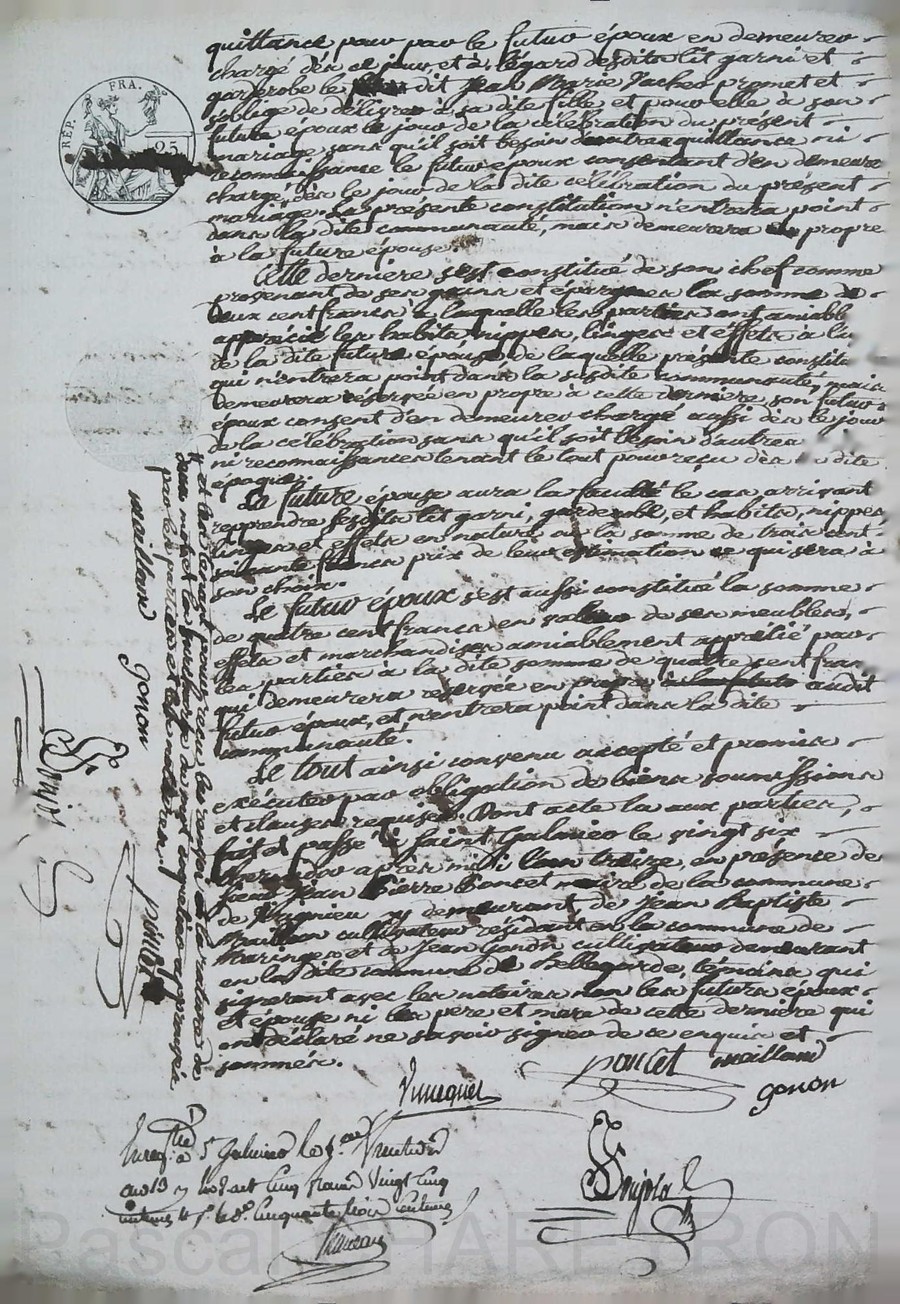 RÉP. FRA.
25
quittance pour par le futur époux en demeurer
chargé dès ce jour, et à légard desdits lit garni et
garderobe le dit Jean Marie Vacher promet et
soblige de délivrer à sa dite fille et pour elle à son
futur époux le jour de la célébration du présent
mariage sans qu'il soit besoin dautres quittance ni
reconnaissance le futur époux consentant d'en demeurer
chargé dès le jour de la dite célébration du présent
mariage. La présente constitution n'entrera point
dans la dite communauté, mais demeurera en propre
à la future épouse.
Cette dernière s'est constitué de son chef comme
provenant de ses gains et épargnes la somme de
deux cent francs à laquelle les parties ont amiable
apprécié les habits, nippes, linges et effets à lu
de la dite future épouse de laquelle présente constitu
qui n'entrera point dans la susdite communauté, mais
demeurera réservée en propre à cette dernière son futur
époux consent d'en demeurer chargé aussi dès le jour
de la célébration sans qu'il soit besoin d'autres
ni reconnaissances tenant le tout pour reçu dès dite
époque.
La future épouse aura la faculté le cas arrivant
reprendre sesdits lit garni, garderobe, et habits, nippes,
linges et effets en nature ou la somme de trois cent
soixante francs prix de leur estimation ce qui sera à
son choix.
Le futur époux s'est aussi constitué la somme
de quatre cent francs en valeur de ses meubles,
effets et marchandises amiablement apprécié par
les parties à la dite somme de quatre cent fran
qui demeurera réservée en propre audit
futur époux, et n'entrera point dans la dite
communauté.
Le tout ainsi convenu accepté et promis
exécuter par obligation de biens soumissions
et clauses requises. Dont acte lu aux parties,
fait et passé à Saint Galmier le vingt six
après midi l'an treize, en présence de
Jean Pierre Poncet maire de la commune
de y demeurant de Jean Baptiste
Maillon cultivateur résidant en la commune de
Maringes et de Jean Gonon cultivateur demeurant
en la dite commune de Bellegarde, témoins qui
signeront avec les notaires non les futurs époux
et épouse ni les père et mère de cette dernière qui
ont déclaré ne savoir signer de ce enquis et
sommés.
poncet mailland
gonon
Enregtré à St Galmier le
an 13 cinq francs vingt cinq
centimes cinquante trois centimes
et les tenant pour reçu
par les parties et les notaires
mailland gonon poncet
Pascal CHARLEYRON